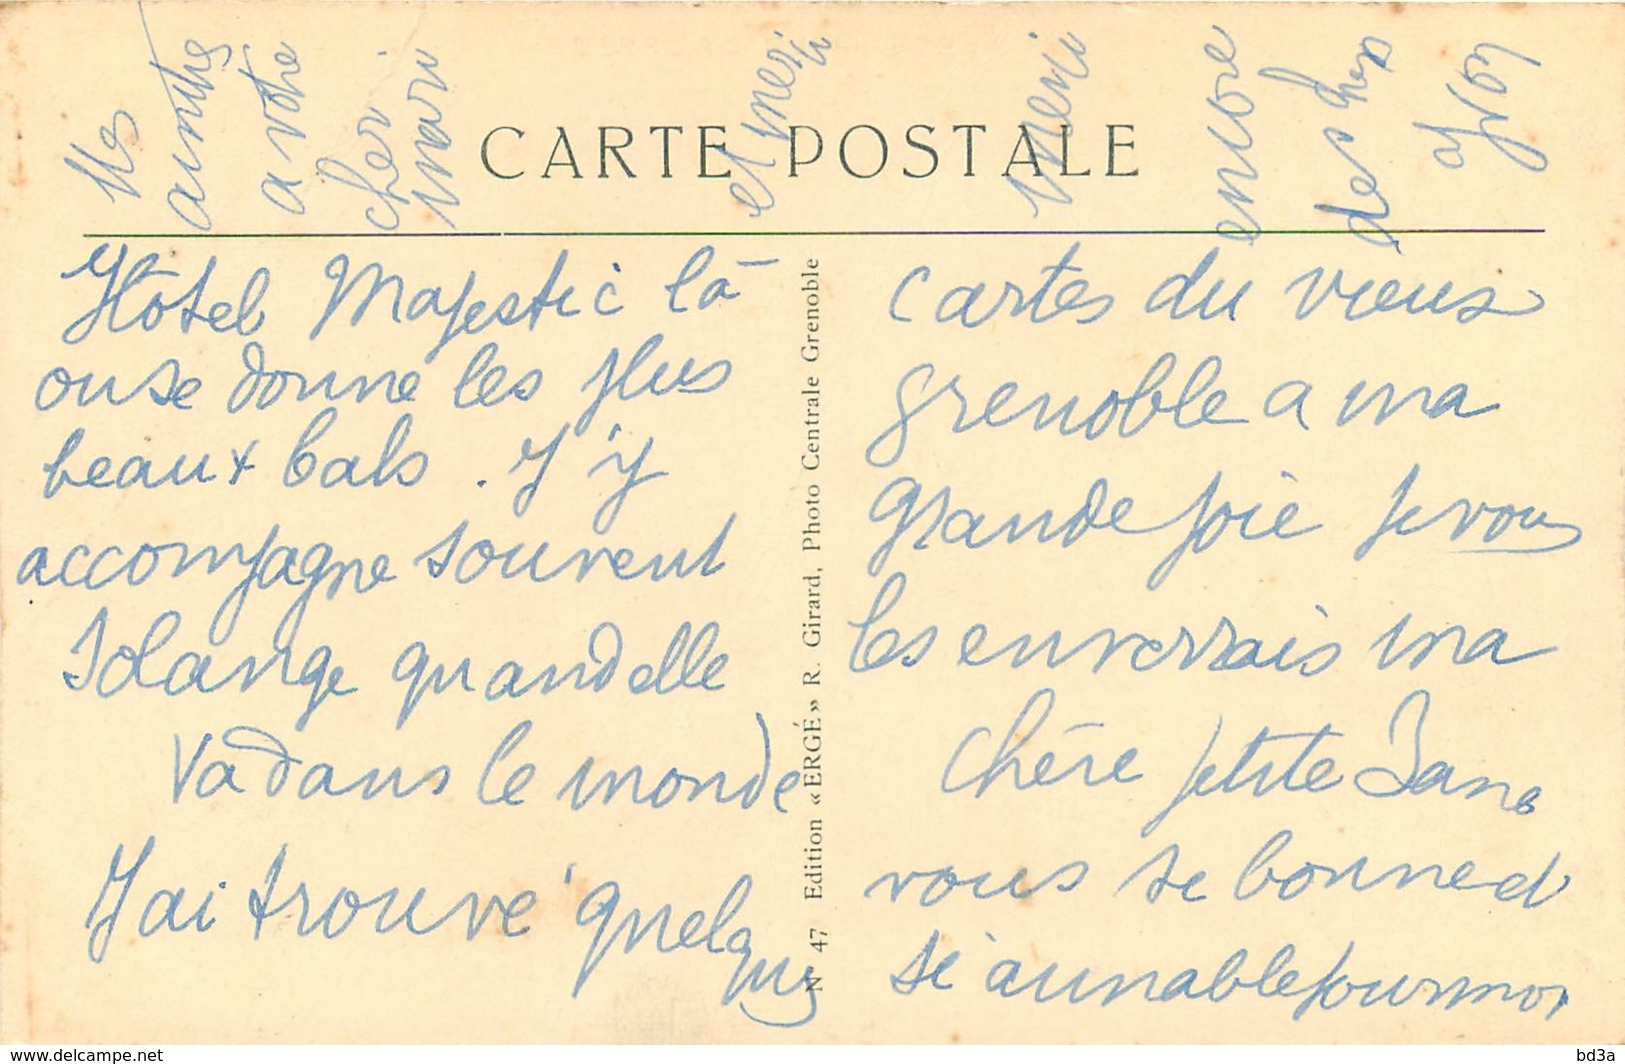 CARTE POSTALE
Hôtel Majestic là
ou se donne les plus
beaux bals. J'y
accompagne souvent
Solange quand elle
va dans le monde
J'ai trouvé quelques
cartes du vieux
grenoble a ma
grande joie je vous
les enverrais ma
chère petite
vous si bonne et
si aimable pour moi
Mes
amitiés
a votre
cher
mari
et merci
merci
encore
des
N° 47 Edition «ERGÉ» R. Girard, Photo Centrale Grenoble
delcampe.net
bd3a